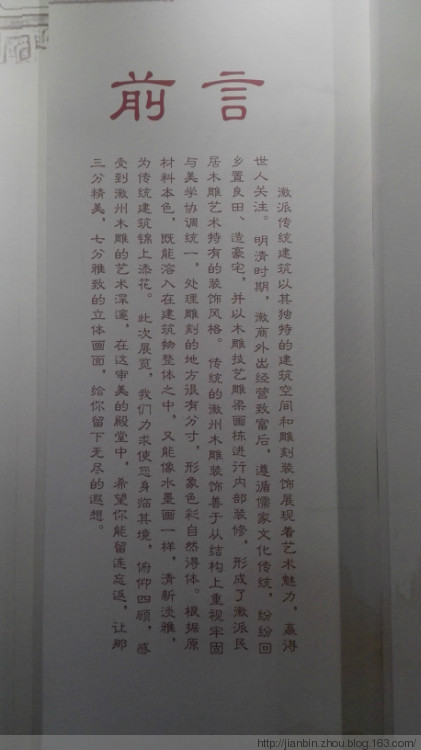 前言
徽派传统建筑以其独特的建筑空间和雕刻装饰展现着艺术魅力，赢得
世人关注。明清时期，徽商外出经营致富后，遵循儒家文化传统，纷纷回
乡置良田、造豪宅，并以木雕技艺雕梁画栋进行内部装修，形成了徽派民
居木雕艺术特有的装饰风格。传统的徽州木雕装饰善于从结构上重视牢固
与美学协调统一，处理雕刻的地方很有分寸，形象色彩自然得体。根据原
材料本色，既能溶入在建筑物整体之中，又能像水墨画一样，清新淡雅，
为传统建筑锦上添花。此次展览，我们力求使您身临其境，俯仰四顾，感
受到徽州木雕的艺术深邃，在这审美的殿堂中，希望你能留连忘返，让那
三分精美，七分雅致的立体画面，给你留下无尽的遐想。
http://jianbin.zhou.blog.163.com/